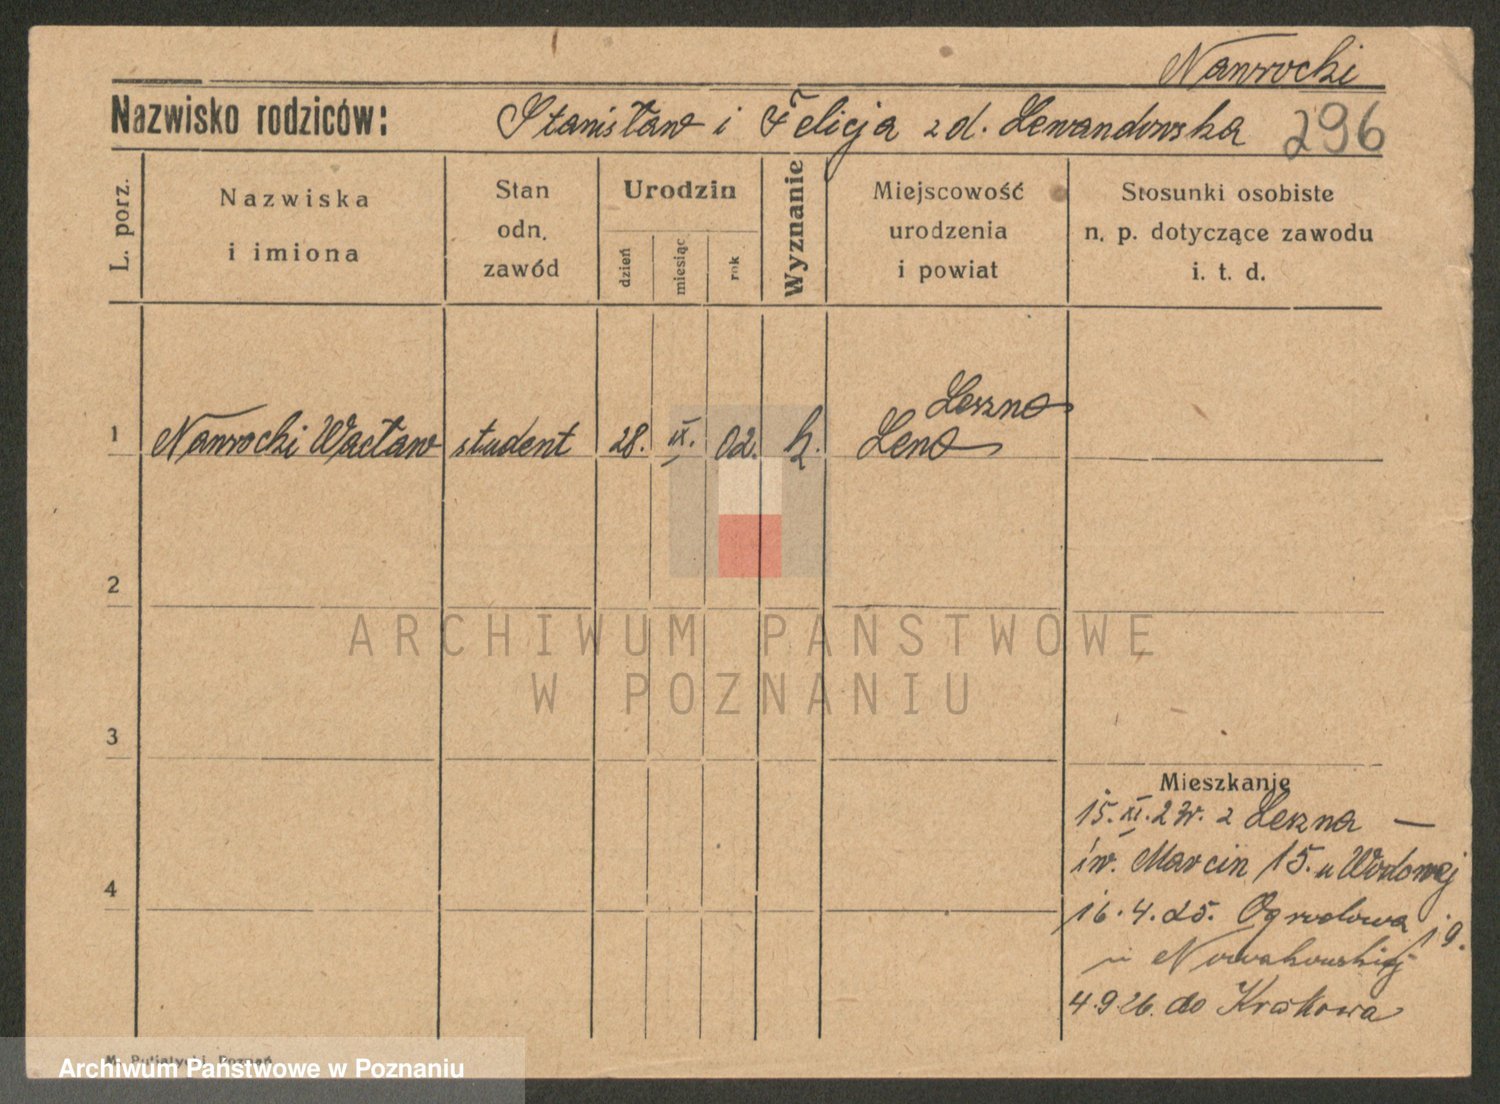 Nawrocki
Nazwisko rodziców: Stanisław i Felicja z d. Lewandowska 296
L. porz.
Nazwiska
i imiona
Stan
odn.
zawód
Urodzin
dzień
miesiąc
rok
Wyznanie
Miejscowość
urodzenia
i powiat
Stosunki osobiste
n. p. dotyczące zawodu
i. t. d.
Leszno
1 Nawrocki Wacław student 28. IX. 02. k.
2
ARCHIWUM PAŃSTWOWE
W POZNANIU
3
Mieszkanie
15. XI. 23r. z Leszna —
św. Marcin 15. u Wodowej
4
16. 4. 25. Ogrodowa 19.
u Nowakowskiej
4.9.26. do Krakowa
M. Putiatycki, Poznań
Archiwum Państwowe w Poznaniu